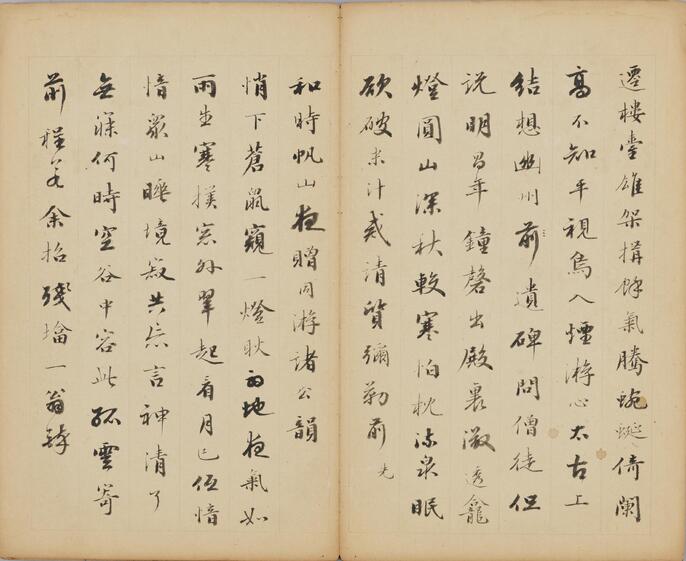 遷樓臺雄架搆餘氣騰蜿蜒倚闌
高不知平視鳥入煙游心太古上
結想幽州前遺碑問僧徒但
説明昌年鐘磬出殿裏微透龕
燈圓山深秋較寒怕枕流泉眠
欲破未汁戒請質彌勒前 先
和時帆山夜贈同游諸公韻
悄下蒼鼠窺一燈耿地夜氣如
雨生寒撲窓外翠起看月已低愔
愔衆山睡境寂共忘言神清了
無寐何時空谷中容此孤雲寄
前程余拾殘墖一翁